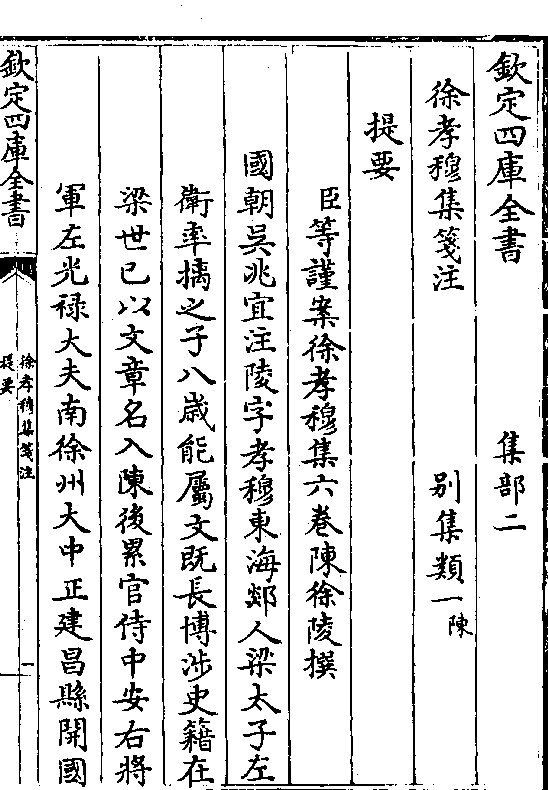 欽定四庫全書　集部二
徐孝穆集箋注　別集類一陳
提要
臣等謹案徐孝穆集六卷陳徐陵撰
國朝吳兆宜注陵字孝穆東海郯人梁太子左
衛率摛之子八歲能屬文既長博涉史籍在
梁世已以文章名入陳後累官侍中安右將
軍左光禄大夫南徐州大中正建昌縣開國
欽定四庫全書
徐孝穆集箋注
提要
一